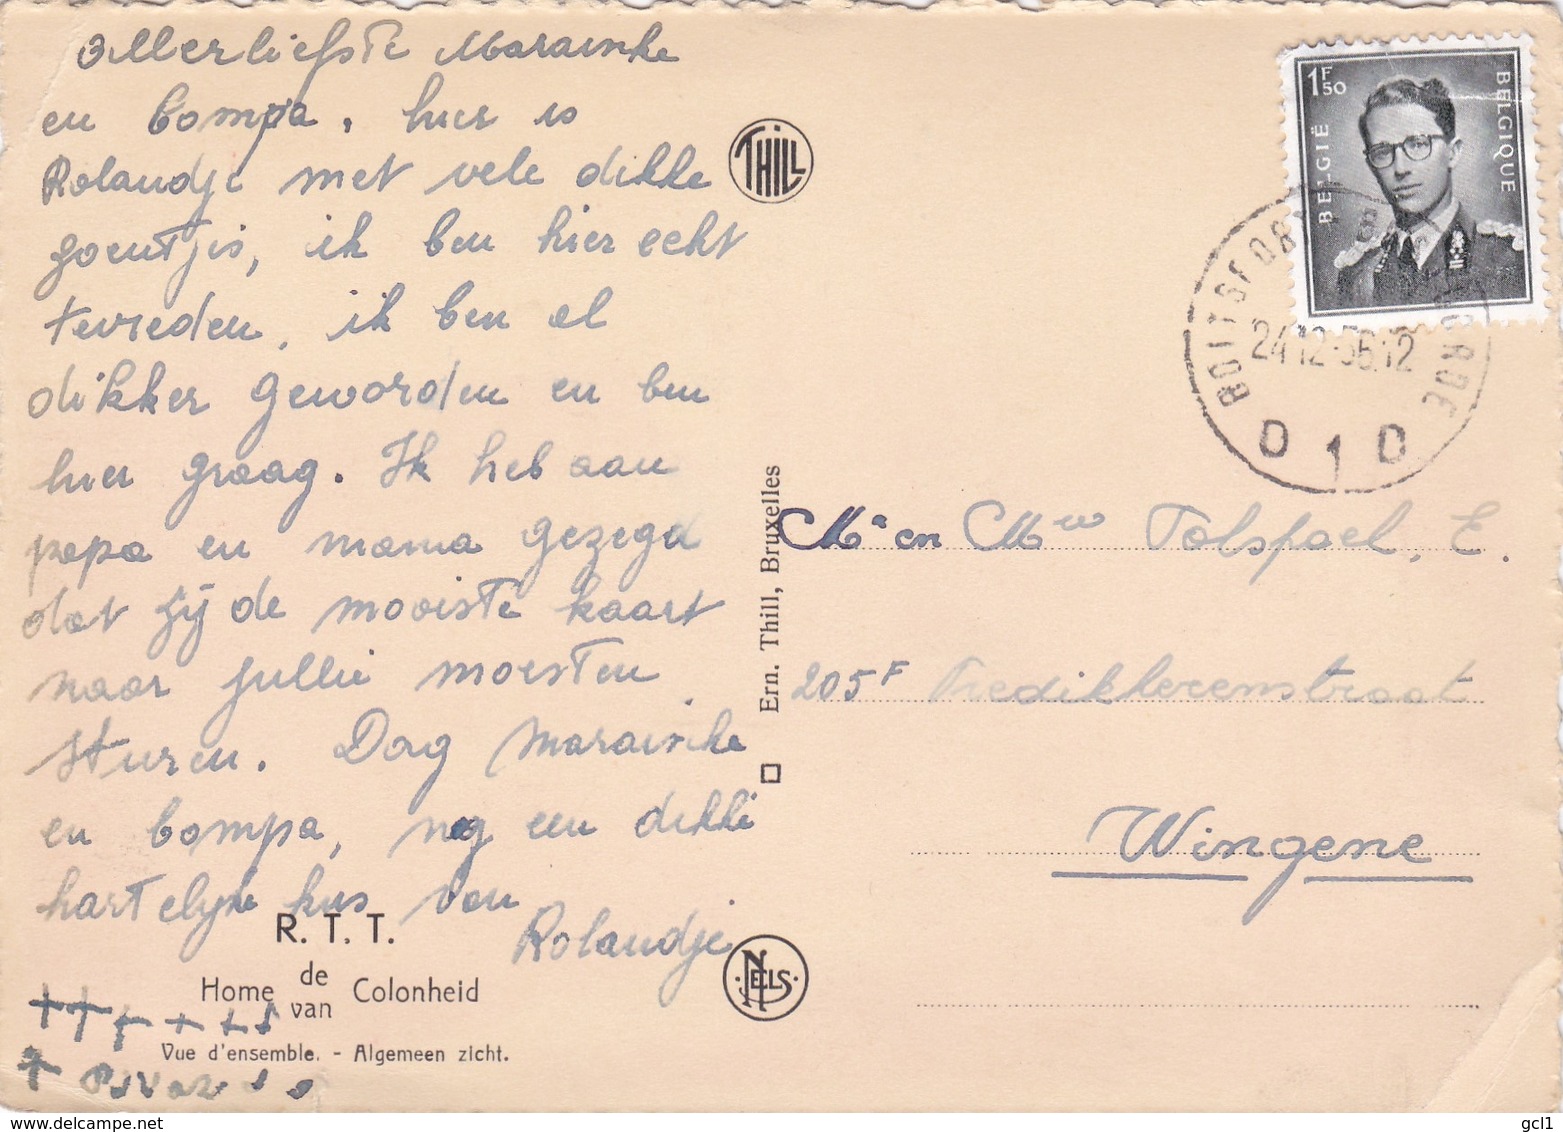 Allerliefste Marainke
en bompa, hier is
Rolandje met vele dikke
zoentjes, ik ben hier echt
tevreden, ik ben al
dikker geworden en ben
hier graag. Ik heb aan
papa en mama gezegd
dat zij de mooiste kaart
naar jullie moesten
sturen. Dag marainke
en bompa, nog een dikke
hartelijke kus van
Rolandje
R. T. T.
Home de van Colonheid
Vue d'ensemble. - Algemeen zicht.
THILL
Ern. Thill, Bruxelles
NELS
1F50
BELGIË
BELGIQUE
BOITSFORT
24-12-56.12
D 1 D
Mr en Mvw Tolspoel, E.
205F Predikheerenstraat
Wingene
gcl1